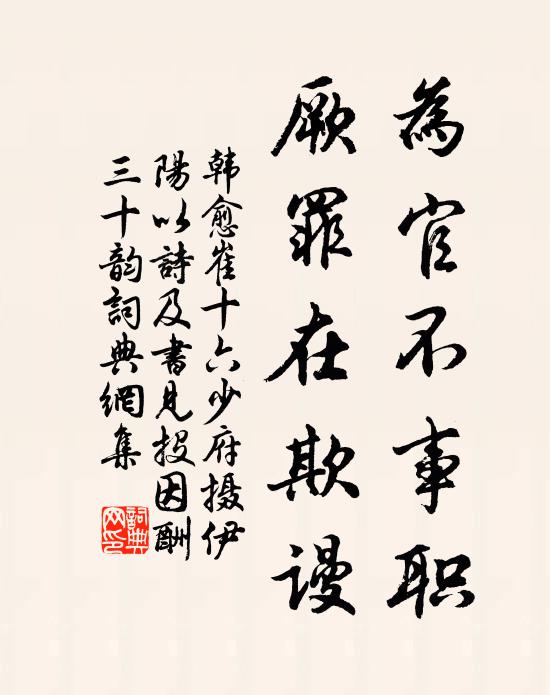 為官不事职
厥罪在欺謾
韩愈崔十六少府摄伊
陽以詩及書見投因酬
三十韵詞典網集
詞典
网印